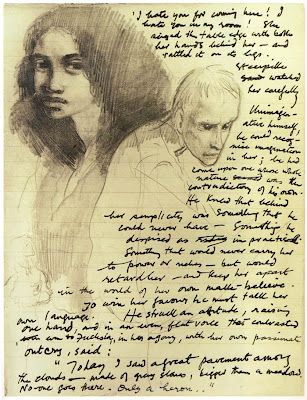 "I hate you for coming here! I
hate you in my room! She
seized the table edge with both
her hands behind her — and
rattled it on its legs.
Steerpike
watched
her carefully
Unimagin-
ative himself
he could recog-
nise imagination
in her; he had
come upon one whose whole
nature was the
contradictory of his own.
He knew that behind
her simplicity was something that he
could never have — Something he
despised as impractical
Something that would never carry her
to power or riches — but would
retard her — and keep her apart
in the world of her own make-believe.
To win her favour he must talk her
own language. He struck an attitude, raising
one hand, and in an even, flat voice that contrasted
with to Fuchsia, in her agony, with her own passionate
outcry, said:
"Today I saw a great pavement among
the clouds — made of grey stones, bigger than a meadow.
No-one goes there. Only a heron.."